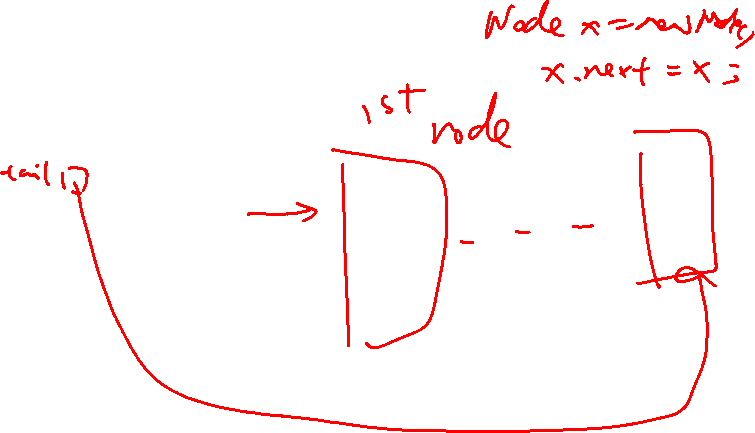 Node x = new Node;
x.next = x;
1st
node
tail